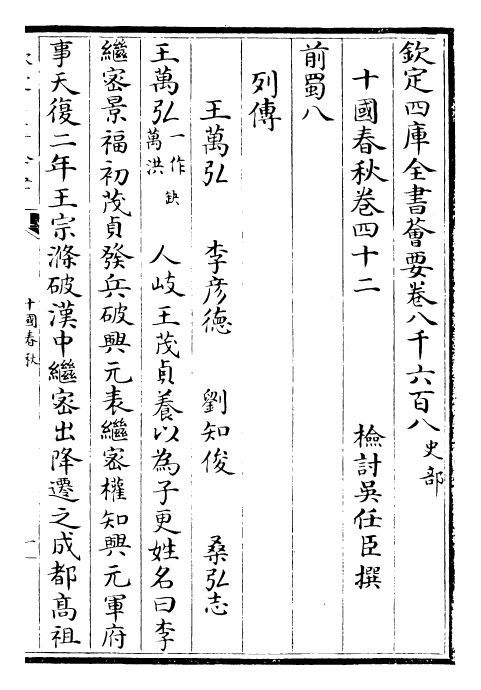 欽定四庫全書薈要卷八千六百八 史部
十國春秋卷四十二 檢討吳任臣撰
前蜀八
列傳
王萬弘 李彦德 劉知俊 桑弘志
王萬弘一作萬洪 缺 人岐王茂貞養以為子更姓名曰李
繼密景福初茂貞發兵破興元表繼密權知興元軍府
事天復二年王宗滌破漢中繼密出降遷之成都髙祖
十國春秋
一